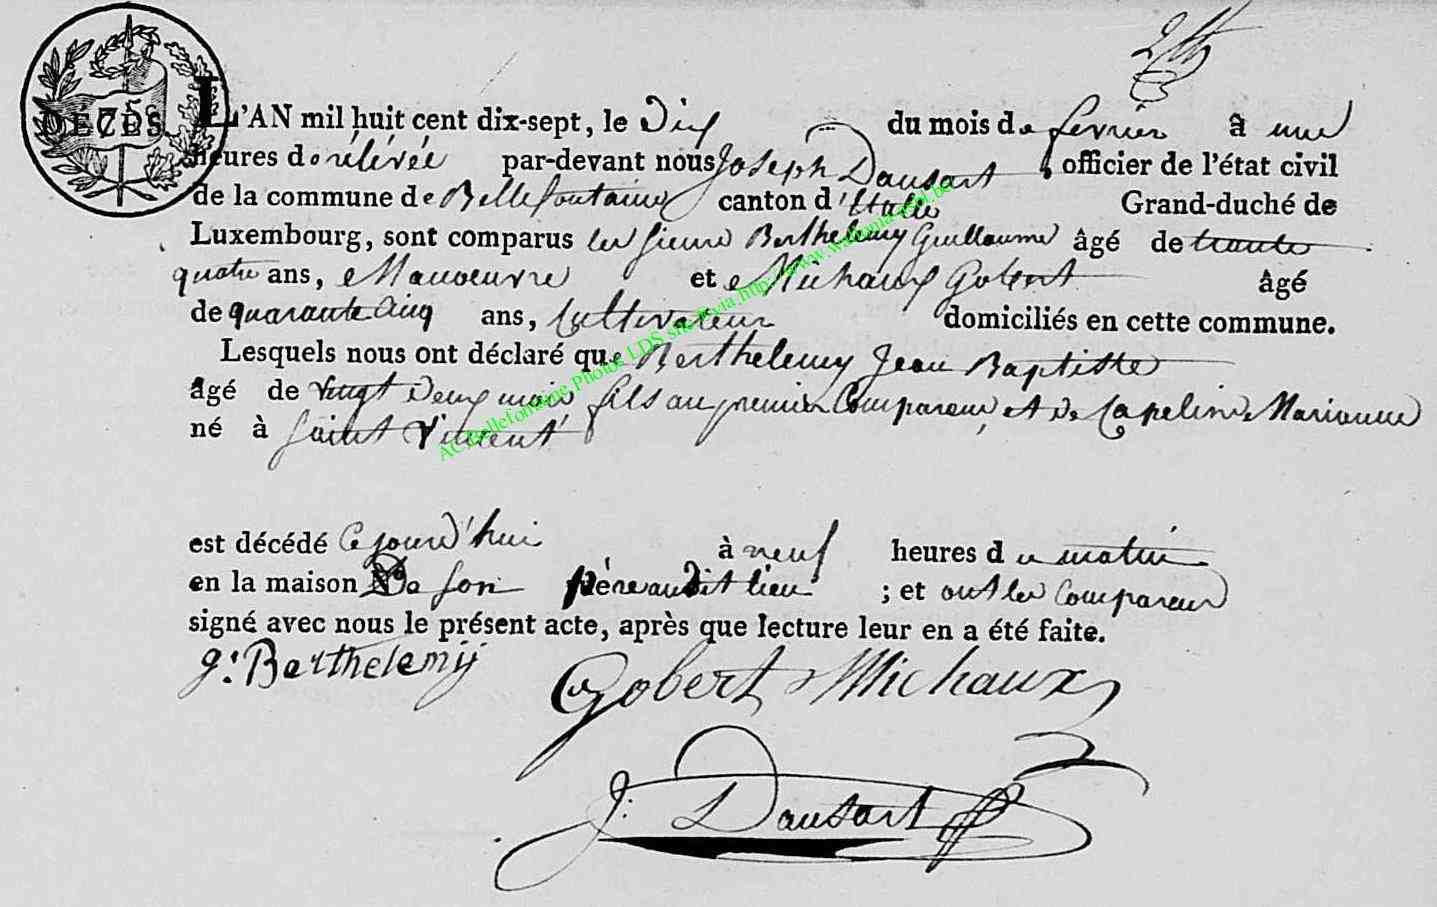 DÉCÈS.
75c
L'AN mil huit cent dix-sept, le Dix du mois de fevrier à une
heures de rélévée par-devant nous Joseph Dausart officier de l'état civil
de la commune de Bellefontaine canton d'Etalle Grand-duché de
Luxembourg, sont comparus les sieurs Berthelemy Guillaume âgé de trante
quatre ans, Manoeuvre et Michaux Gobert âgé
de quarante Cinq ans, Cultivateur domiciliés en cette commune.
Lesquels nous ont déclaré que Berthelemy Jean Baptiste
âgé de vingt deux mois fils au premier Comparans et de Capeline Marianne
né à Saint Vincent
est décédé Cejourd'hui à neuf heures du matin
en la maison De son père audit lieu ; et ont les Comparans
signé avec nous le présent acte, après que lecture leur en a été faite.
g: Berthelemÿ
Gobert Michaux
J. Dausart
AC Bellefontaine Photos LDS site Via http://www.